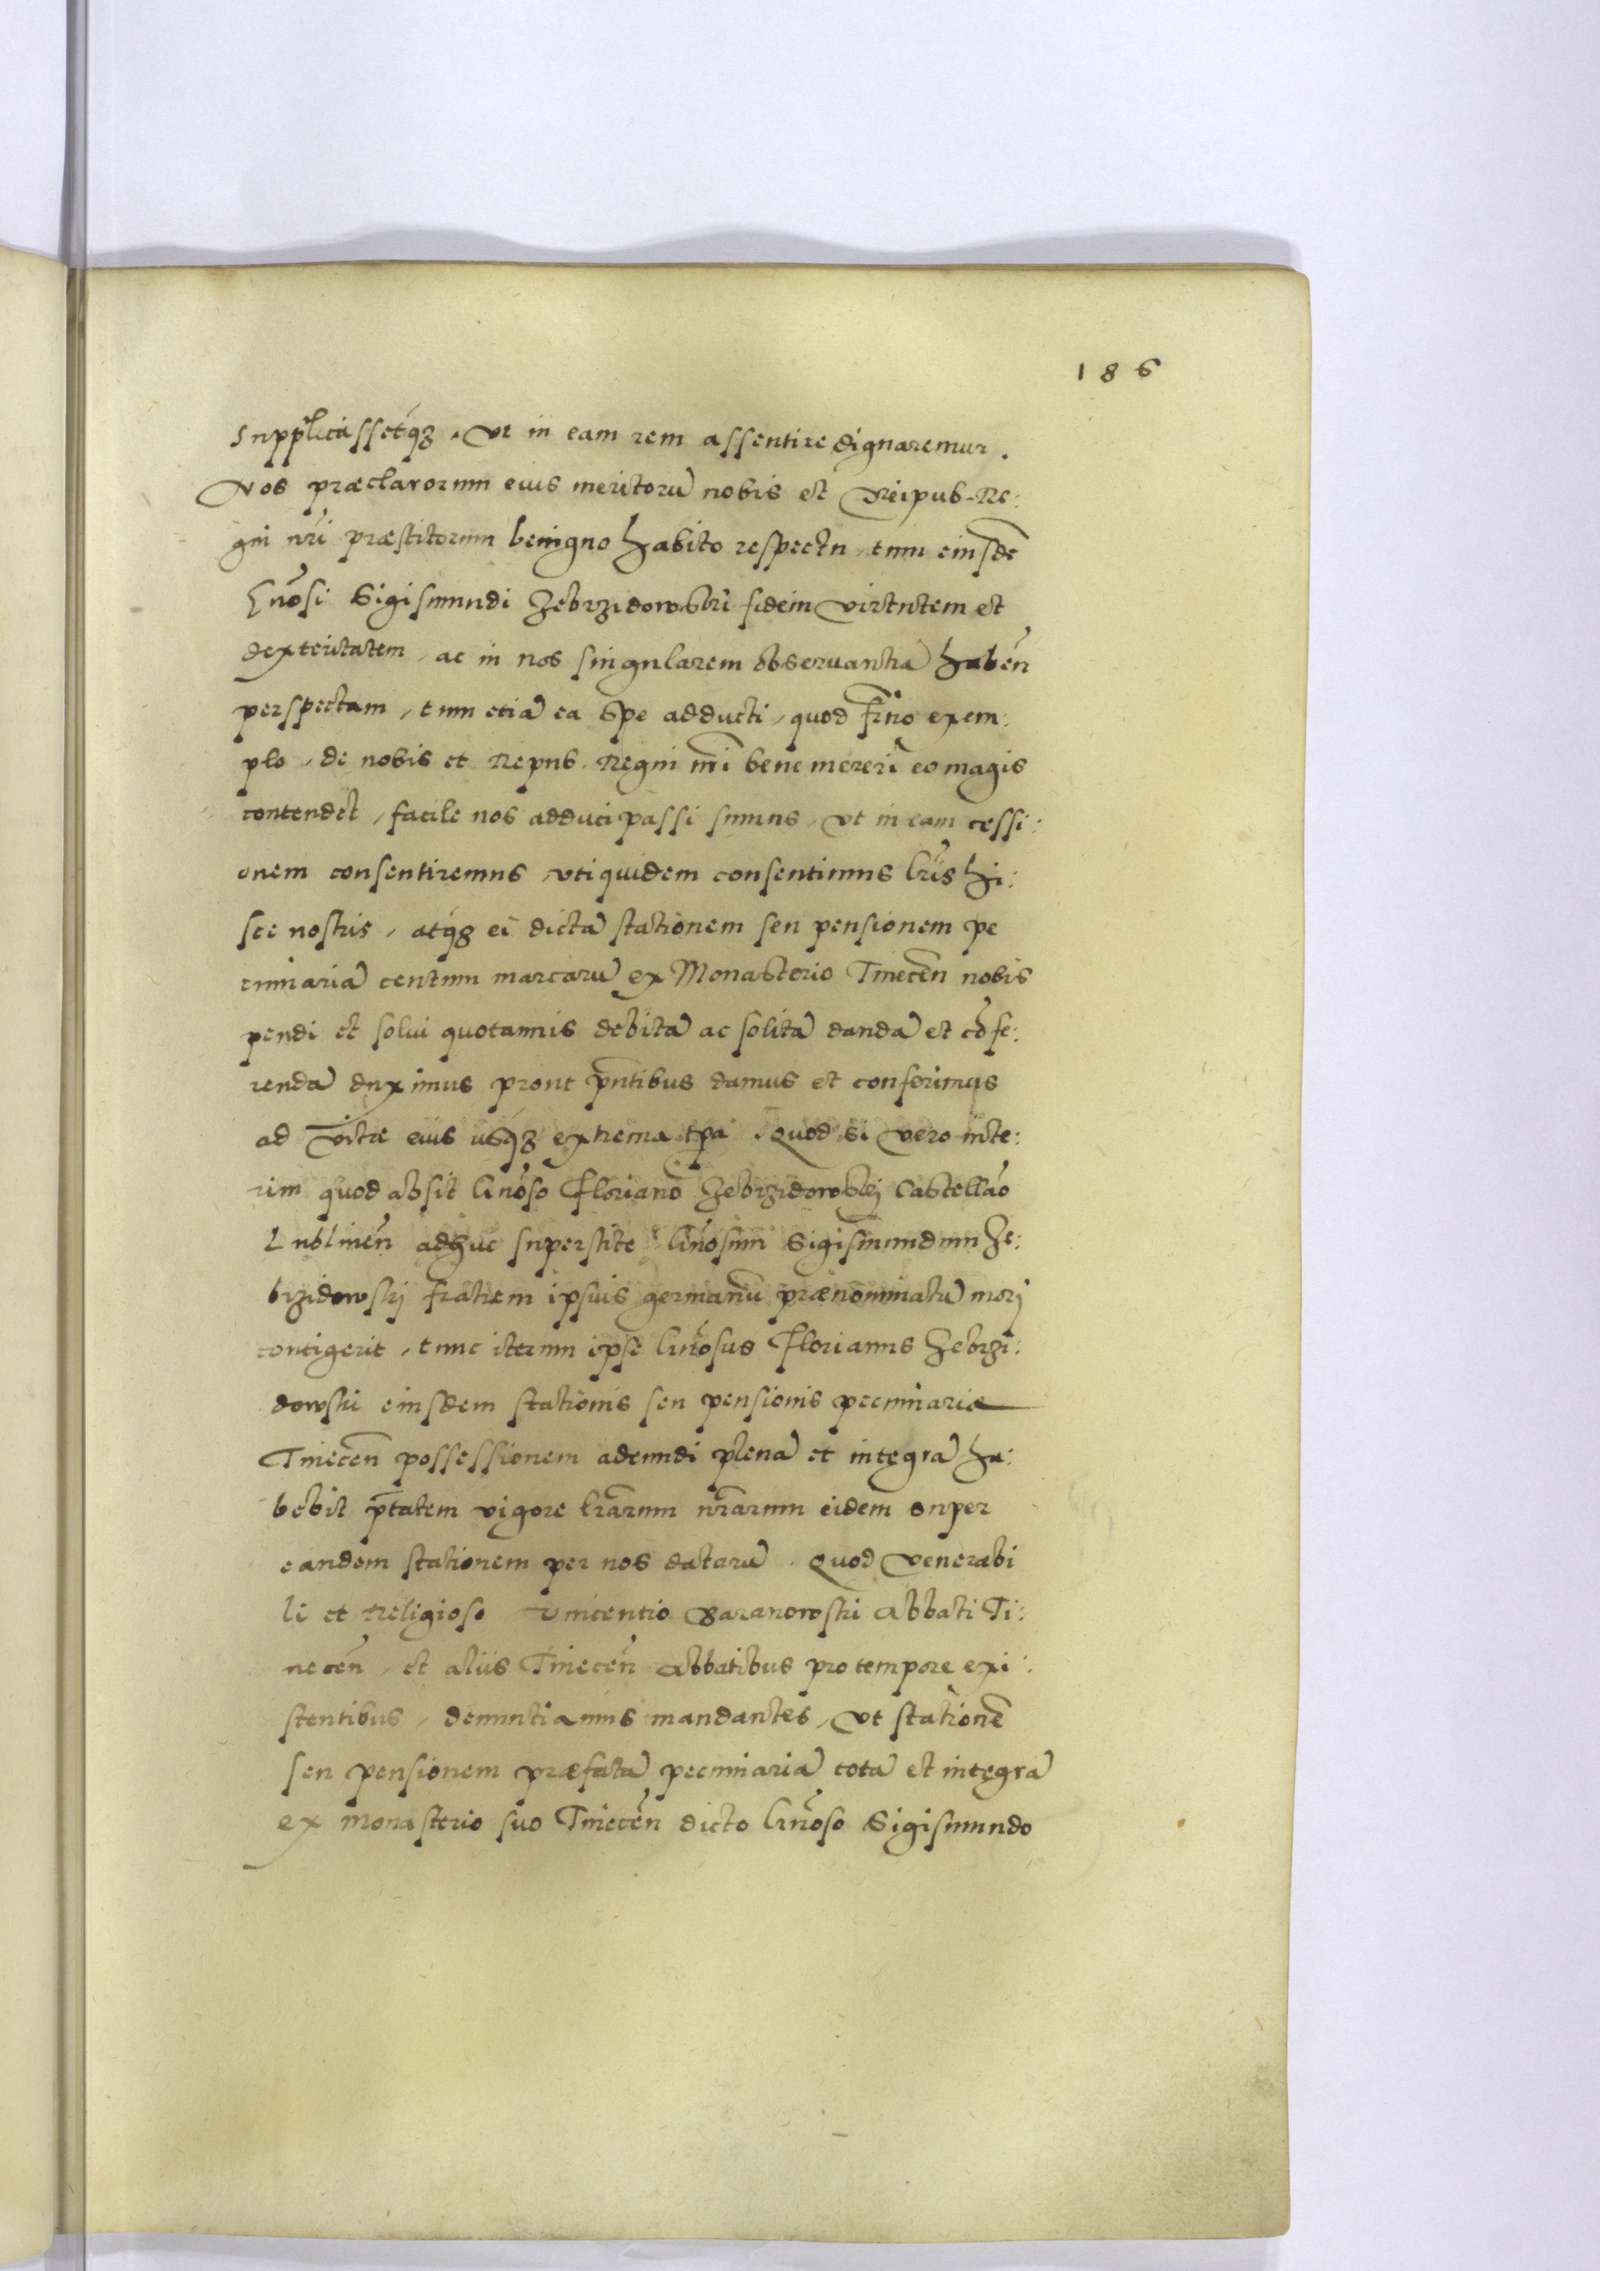 186
Supplicassetq3, Vt in eam rem assentire dignaremur.
Nos præclarorum eius meritorũ nobis et Reipub. Re:
gni nr̃i præstitorum benigno habito respectu, tum eiusdẽ
Gnõsi Sigismundi Zebrzidowski fidem virtutem et
dexteritatem, ac in nos singularem obseruantiã habeñ
perspectam, tum etiã ea spe adducti, quod fr̃no exem:
plo, de nobis et Repub. Regni nr̃i bene mereri eo magis
contendet, facile nos adduci passi sumus, vt in eam cessi:
onem consentiremus, vti quidem consentimus lr̃is hi:
sce nostris, atq3 ei dictã stationem seu pensionem pe
cuniariã centum marcarũ ex Monasterio Tineceñ nobis
pendi et solui quotannis debitã ac solitã dandã et cõfe:
rendã duximus prout pñtibus damus et conferimus
ad vitæ eius usq3 extrema tp̃a. Quod si vero inte:
rim quod absit Gnõso Floriano Zebrzidowskij Castellãо
Lublineñ adhuc superstite Gnõsum Sigismundum Ze:
brzidowskj fratrem ipsius germanũ prænominatũ morj
contigerit, tunc iterum ipse Gnõsus Florianus Zebrzi:
dowski eiusdem stationis seu pensionis pecuniariæ
Tineceñ possessionem adeundi plenã et integrã ha:
bebit p̃tatem vigore lr̃arum nr̃arum eidem super
eandem stationem per nos datarũ. Quod Venerabi
li et Religioso Vincentio Baranowski Abbati Ti:
neceñ, et aliis Tineceñ Abbatibus pro tempore exi:
stentibus, denuntiamus mandantes, vt stationẽ
seu pensionem præfatã pecuniariã totã et integrã
ex monasterio suo Tineceñ dicto Gnõso Sigismundo